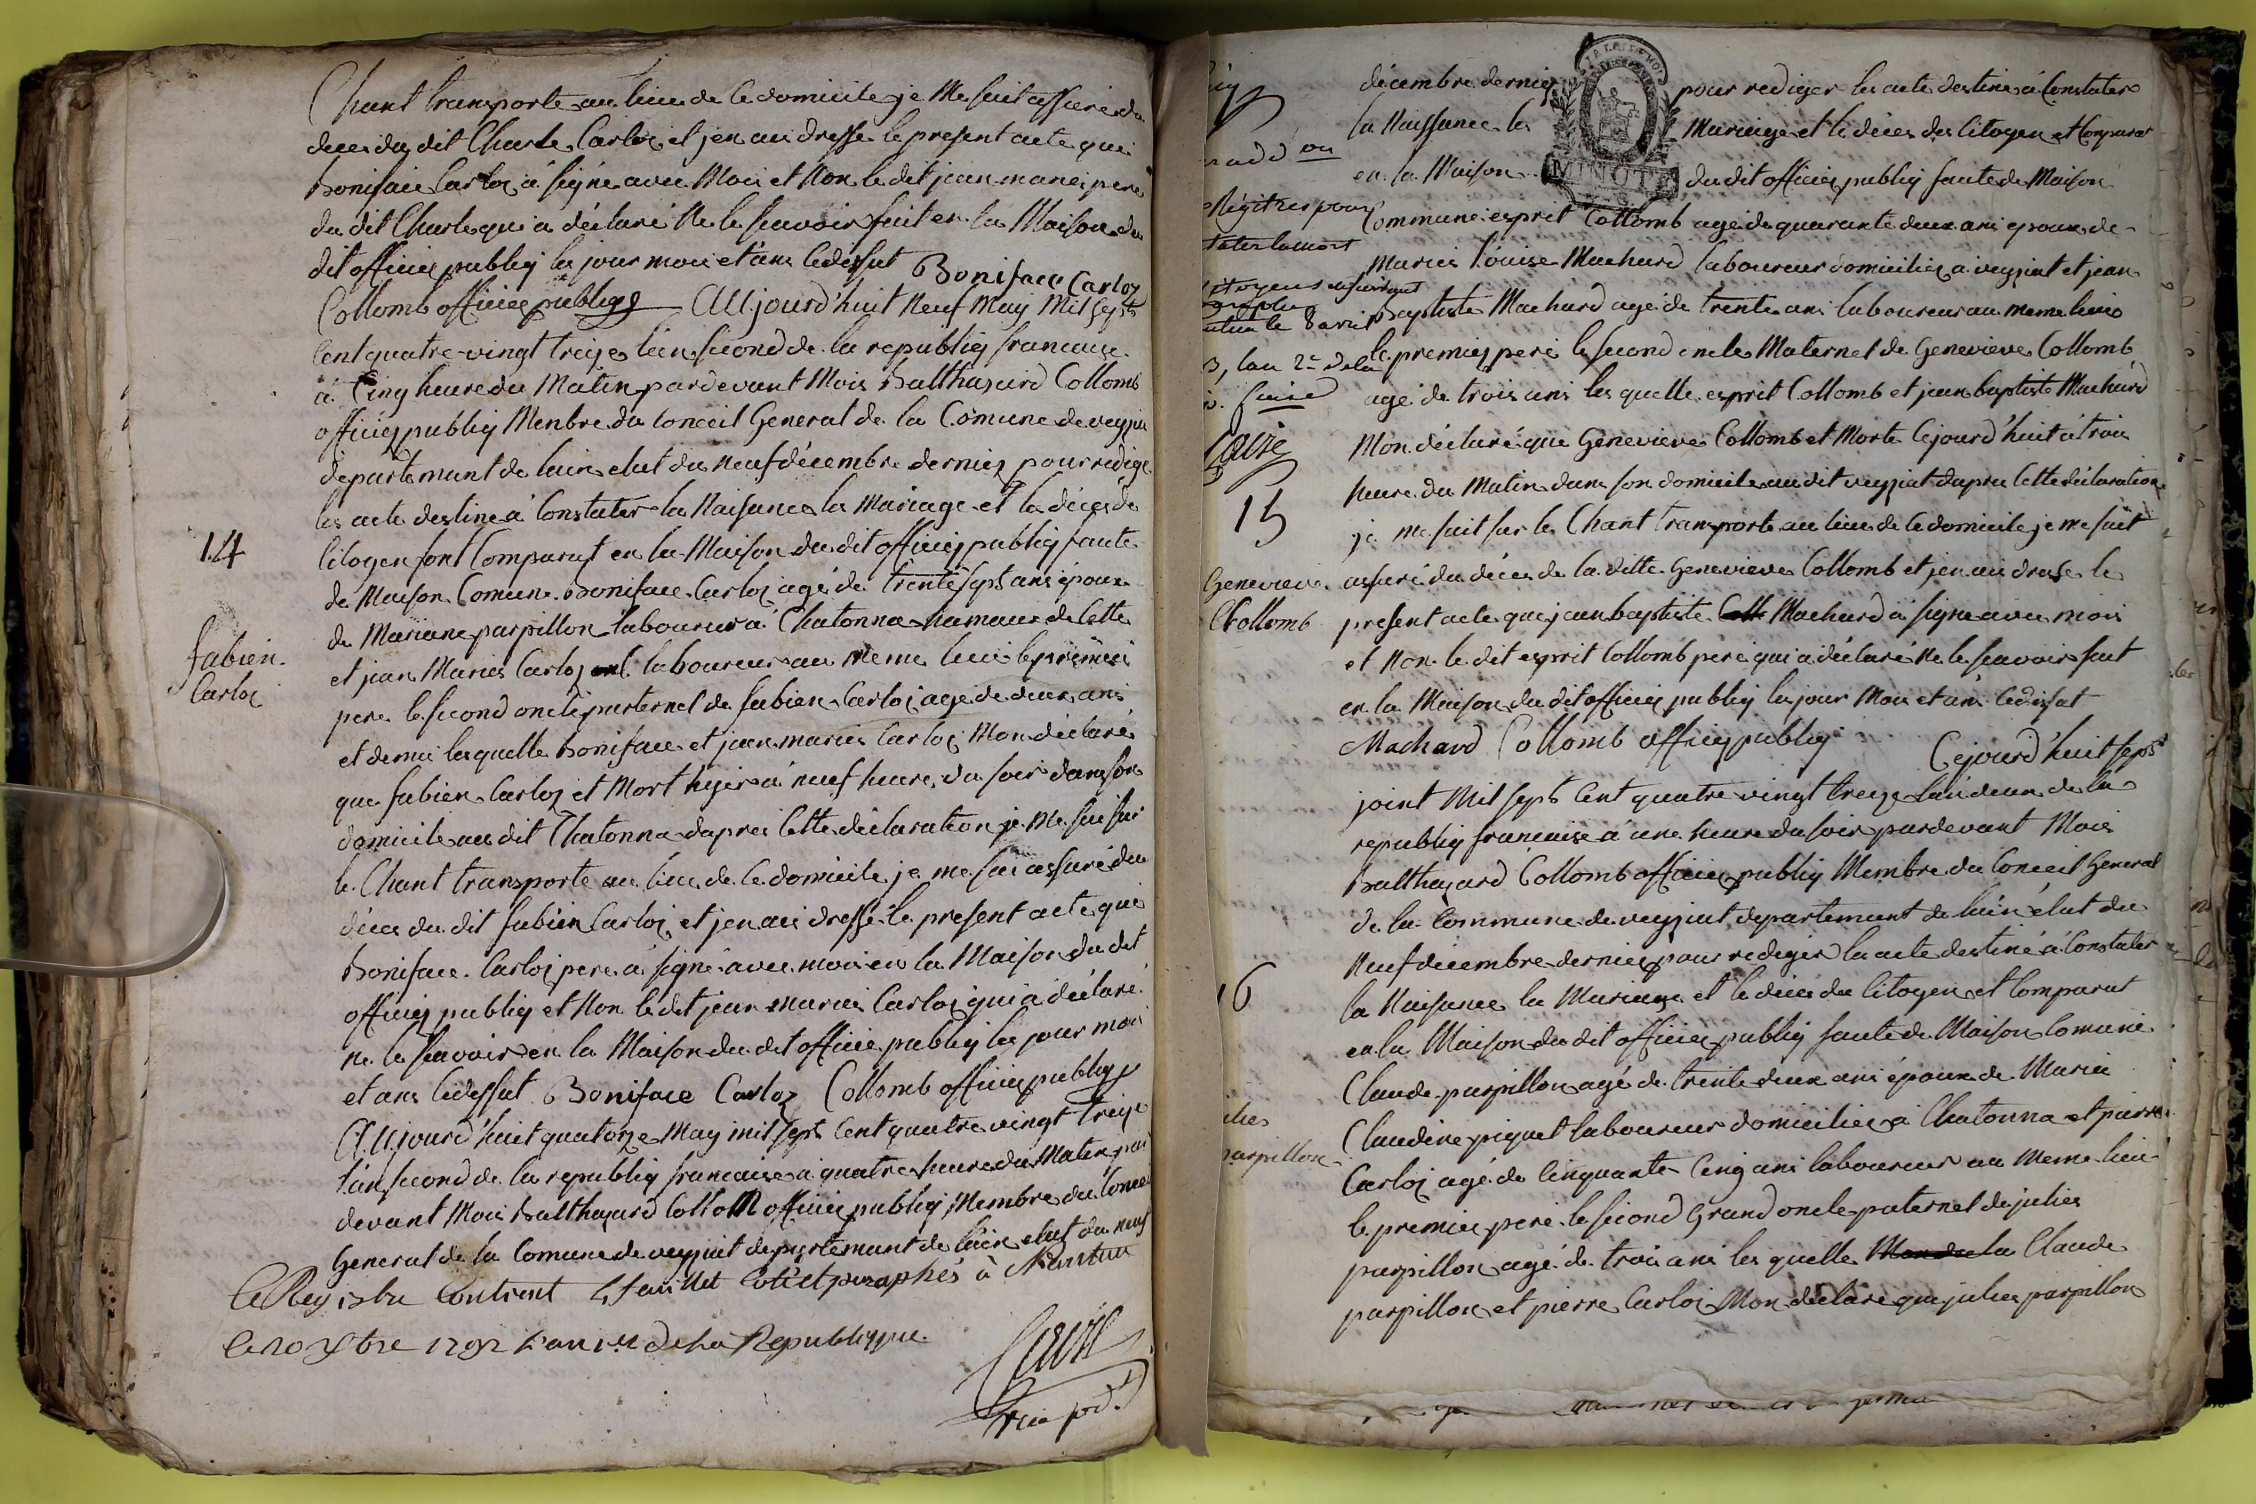 Chant transporte au lieu de ce domicile je me suit assuré du
deces du dit Charle Carloz et jen ai dresse le present acte que
boniface Carloz à signe avec Moi et Non le dit jean marei pere
du dit Charle qui a déclaré Ne le scavoir fait en la Maison du
dit officiez publiq les jour mois et ans cedessut Boniface Carloz
Collomb officiez publiq AUjourd'huit Neuf May Mil septs
Cent quatre-vingt treize l'an second de la republiq francaise
à Cinq heure du Matin pardevant Mois balthazard Collomb
officiez publiq Menbre du Conceil General de la Comune de veyzia
departemant de lain elut du neuf décembre derniez pour rediger
les acte destine à Constater la Naisance la Mariage et la décès de
14
Citoyen sont Comparut en la Maison du dit officiez publiq faute
de Maison Comune boniface Carloz agé de trente sept ans epoux
de Mariane parpillon laboureur à Chatonna hamaux de Cette
fabien
Carloz
et jean Maries Carloz laboureur au meme lieu le premiei
pere le second oncle paternel de fabien Carloz agé de deux ans
et demi lesquelle boniface et jean maries Carloz Mon déclaré
que fabien Carloz et Mort hyer à neuf heure du soir dans son
domicile au dit Chatonna dapres Cette déclaration je me sui sur
le Chant transporte au lieu de ce domicile je me sui assuré du
déces du dit fabien Carloz et jen ai dressé le present acte que
boniface Carloz pere à signé avec moi en la Maison du dit
officiez publiq et Non le dit jean maries Carloz qui à déclaré
ne le scavoir en la Maison du dit officie publiq les jour mois
et ans cedessut Boniface Carloz Collomb officiez publiq
AUjourd'huit quatorze May mil septs Cent quatre vingt treize
l'an second de la republiq francaise a quatre heure du Matin par
devant Mois balthazard Collomb officiez publiq Membre du Conceil
General de la Comune de veyziat departemant de lain elut du neuf
Ce Registre Contient feuillet Coté et paraphés à Nantua
le 20 Xbre 1792 l'an 1er de la Republique
décembre derniez pour rediger les acte destiné à Constater
la Naissance les Mariage et le déces des Citoyen et Comparut
en la Maison du dit officiez publiq faute de Maison
MINUTE
Commune esprit Collomb agé de quarante deux ans epoux de
Maries Louise Machard laboureur domiciliez à veyziat et jean
baptiste Machard agé de trente ans laboureur au meme lieu
le premiez pere le second oncle Maternel de Genevieve Collomb
agé de trois ans les quelle esprit Collomb et jean baptiste Machard
Mon déclaré que Genevieve Collomb et Morte Cejourd'huit à trois
15
heure du Matin dans son domicile au dit veyziat dapres Cette déclaration
je me suit sur le Chant transporte au lieu de ce domicile je me suit
Genevieve
Collomb
assuré du déces de la ditte Genevieve Collomb et jen ai dresse le
present acte que jean baptiste Machard à signe avec mois
et Non le dit esprit Collomb pere qui a déclaré Ne le scavoir fait
en la Maison du dit officiez publiq les jour Mois et ans cedessut
Machard Collomb officiez publiq Cejourd'huit septs
joint Mil septs Cent quatre vingt treize l'an deux de la
republiq francaise à une heure du soir pardevant Mois
balthazard Collomb officiez publiq Membre du Conceil General
de la Commune de veyziat departemant de lain élut du
Neuf décembre derniez pour rediger la acte destiné à Constater
16
la Naisance la Mariage et le déces du Citoyen et Comparut
en la Maison du dit officiez publiq faute de Maison Comune
Claude parpillon agé de trente deux ans époux de Maries
parpillon
Claudine piquet laboureur domiciliez à Chatonna et pierre
Carloz agé de Cinquante Cinq ans laboureur au meme lieu
le premiez pere le second Grand oncle paternel de julies
parpillon agé de trois ans les quelle Claude
parpillon et pierre Carloz Mon déclaré que julies parpillon